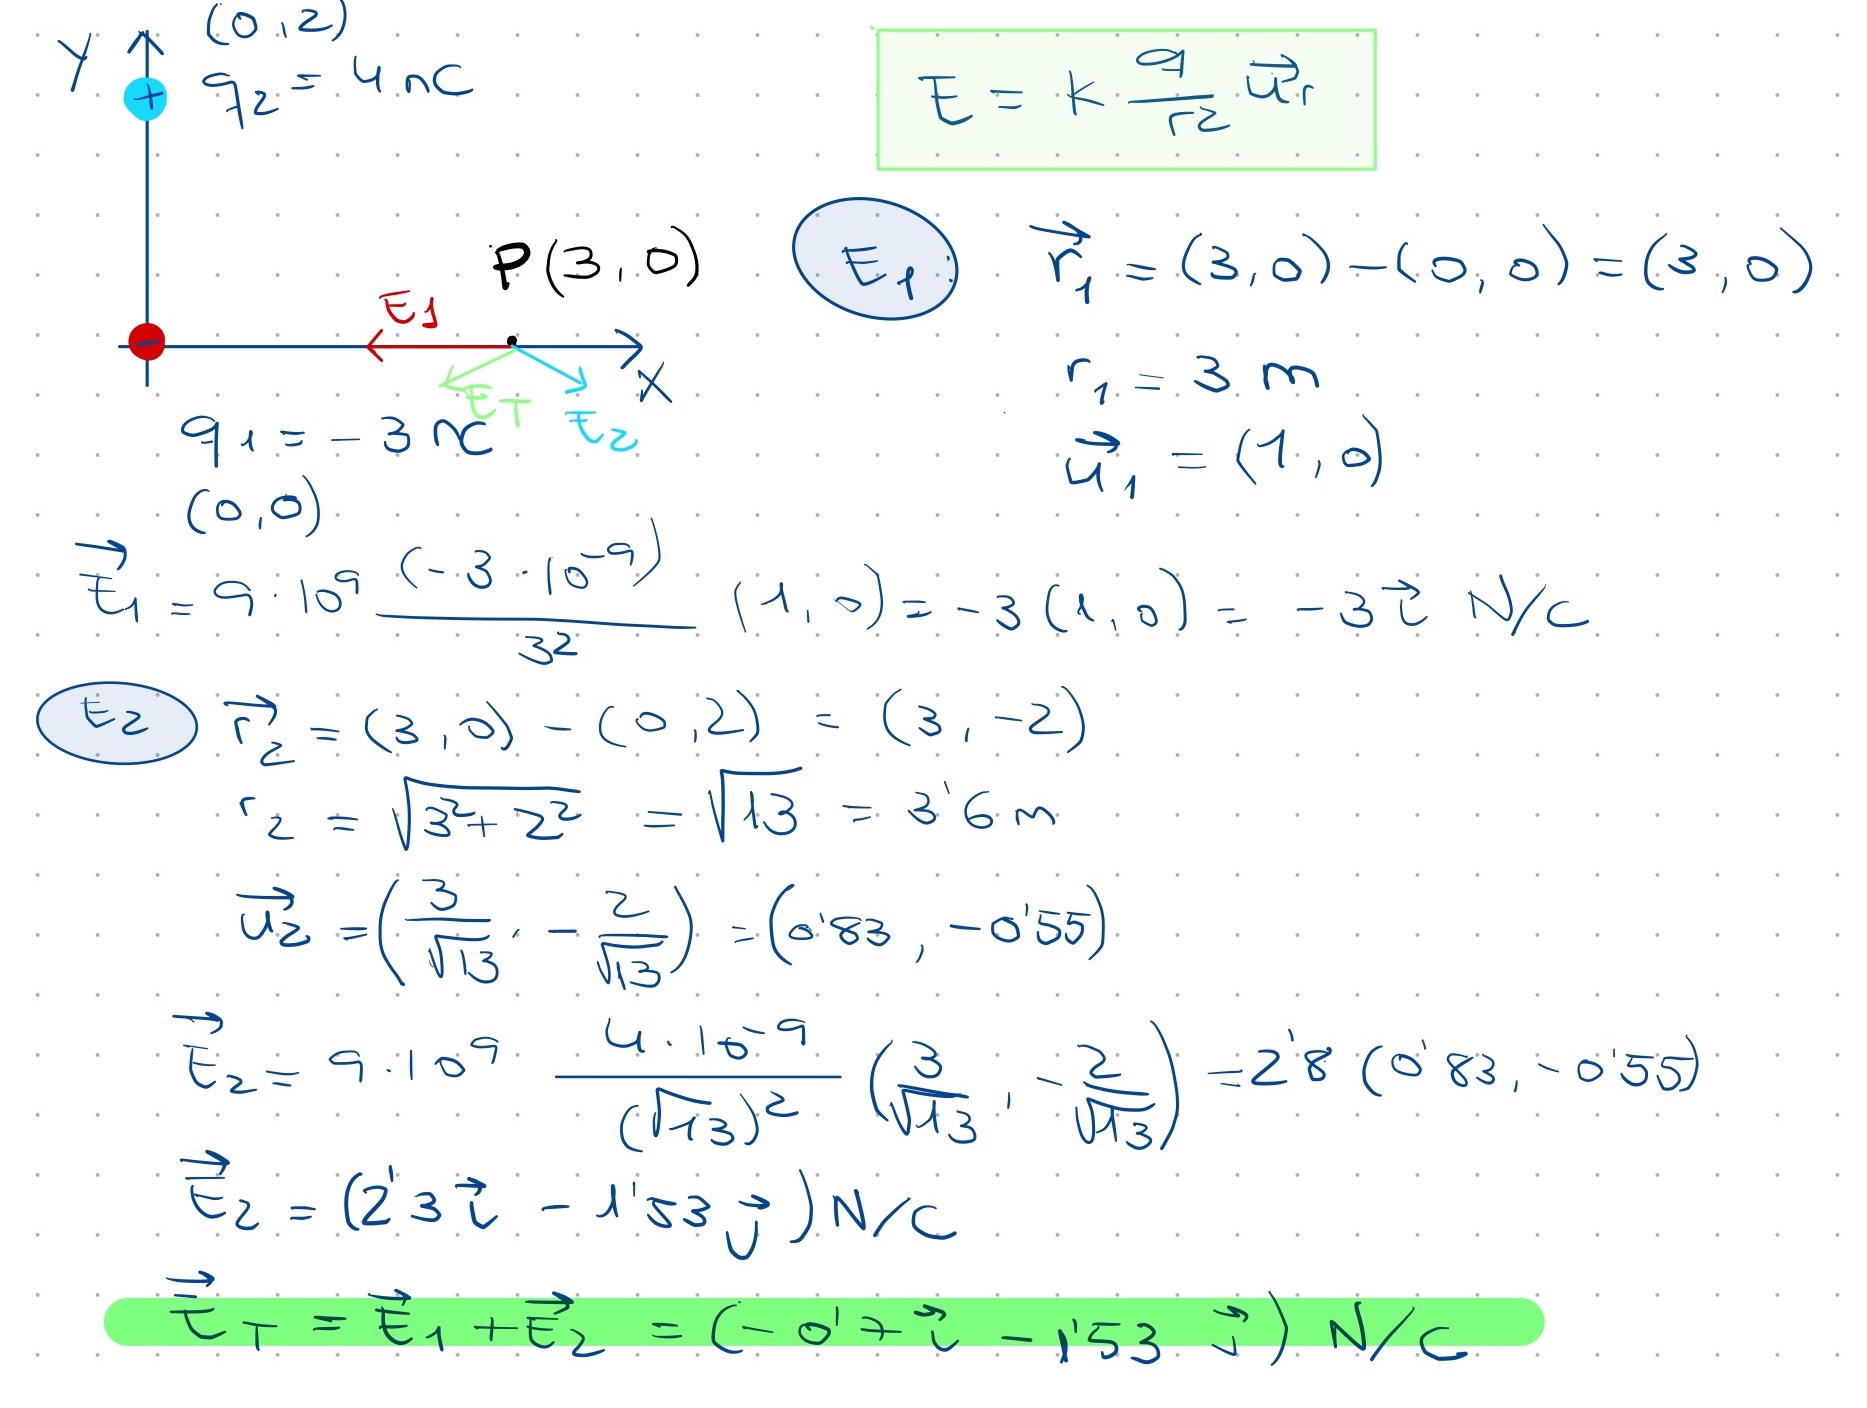 (0,2)
Y
+
q₂ = 4 nC
E = k q/r² u⃗r
P(3,0)
E₁
-
X
E_T
E₂
q₁ = -3 nC
(0,0)
E₁: r⃗₁ = (3,0) - (0,0) = (3,0)
r₁ = 3 m
u⃗₁ = (1,0)
E⃗₁ = 9·10⁹ (-3·10⁻⁹)/3² (1,0) = -3(1,0) = -3 i⃗ N/C
E₂ r⃗₂ = (3,0) - (0,2) = (3,-2)
r₂ = √(3²+2²) = √13 = 3'6 m
u⃗₂ = (3/√13, -2/√13) = (0'83, -0'55)
E⃗₂ = 9·10⁹ 4·10⁻⁹/(√13)² (3/√13, -2/√13) = 2'8 (0'83, -0'55)
E⃗₂ = (2'3 i⃗ - 1'53 j⃗) N/C
E⃗_T = E⃗₁ + E⃗₂ = (-0'7 i⃗ - 1'53 j⃗) N/C